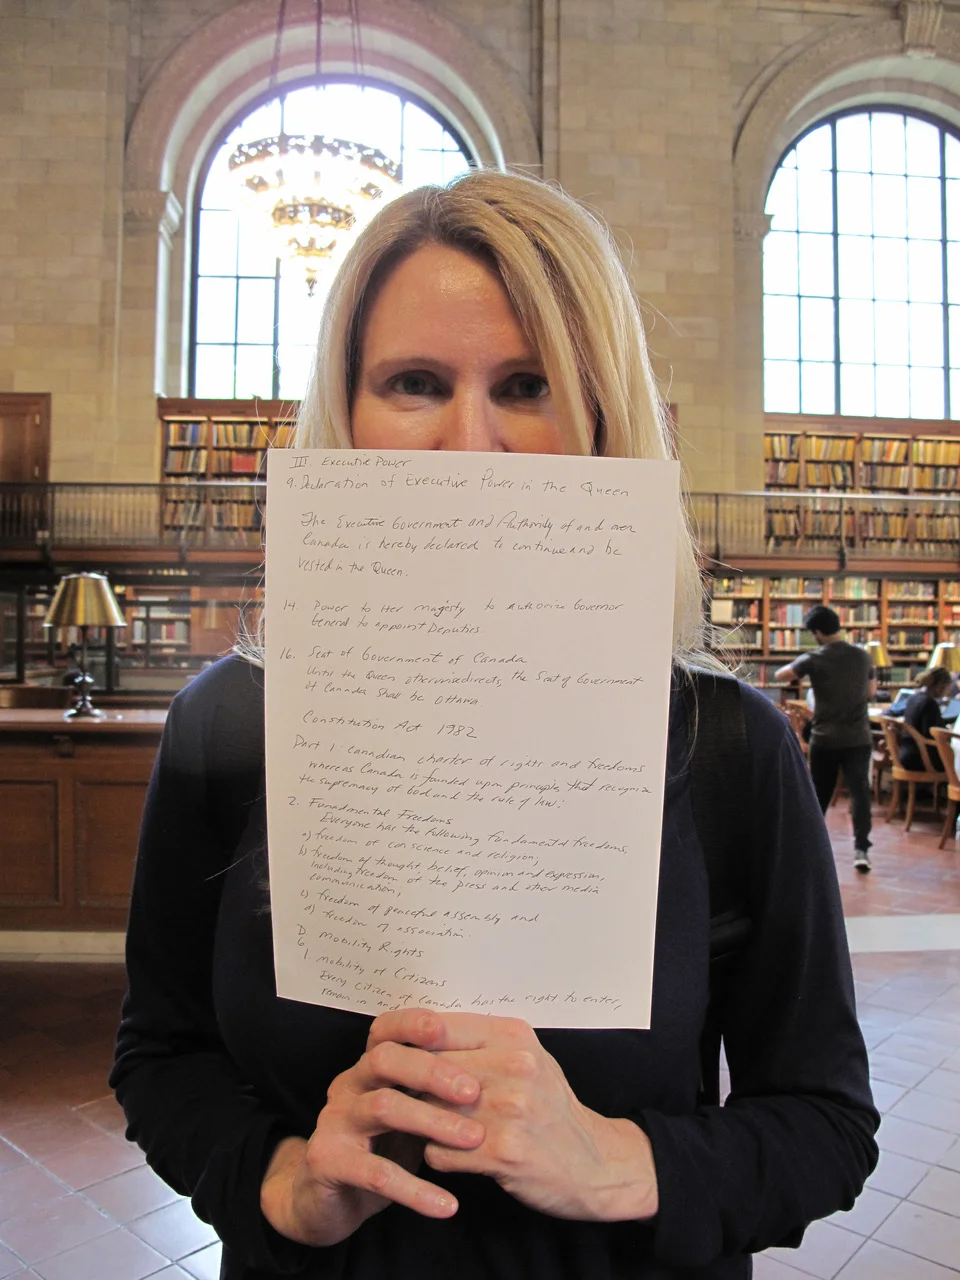 III. Executive Power
9. Declaration of Executive Power in the Queen
The Executive Government and Authority of and over
Canada is hereby declared to continue and be
vested in the Queen.
14. Power to Her majesty to authorize Governor
General to appoint Deputies.
16. Seat of Government of Canada
Until the Queen otherwise directs, the Seat of Government
of Canada shall be Ottawa
Constitution Act 1982
Part 1: Canadian charter of rights and freedoms
whereas Canada is founded upon principles that recognize
the supremacy of God and the rule of law:
2. Fundmental Freedoms
Everyone has the following fundamental freedoms,
a) freedom of conscience and religion;
b) freedom of thought belief, opinion and expression,
including freedom of the press and other media
communication;
c) freedom of peaceful assembly and
d) freedom of association.
D. Mobility Rights
6.
1. mobility of Citizens
Every citizen of Canada has the right to enter,
remain in and